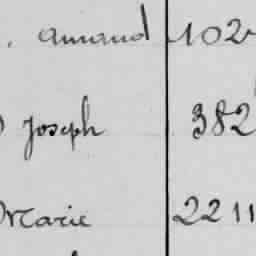 Armand 102
Joseph 382
Marie 2211